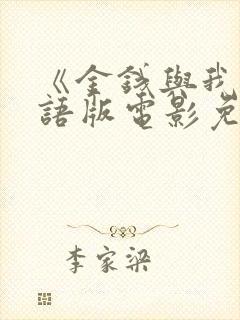 《金錢與我
語版電影免
李家梁